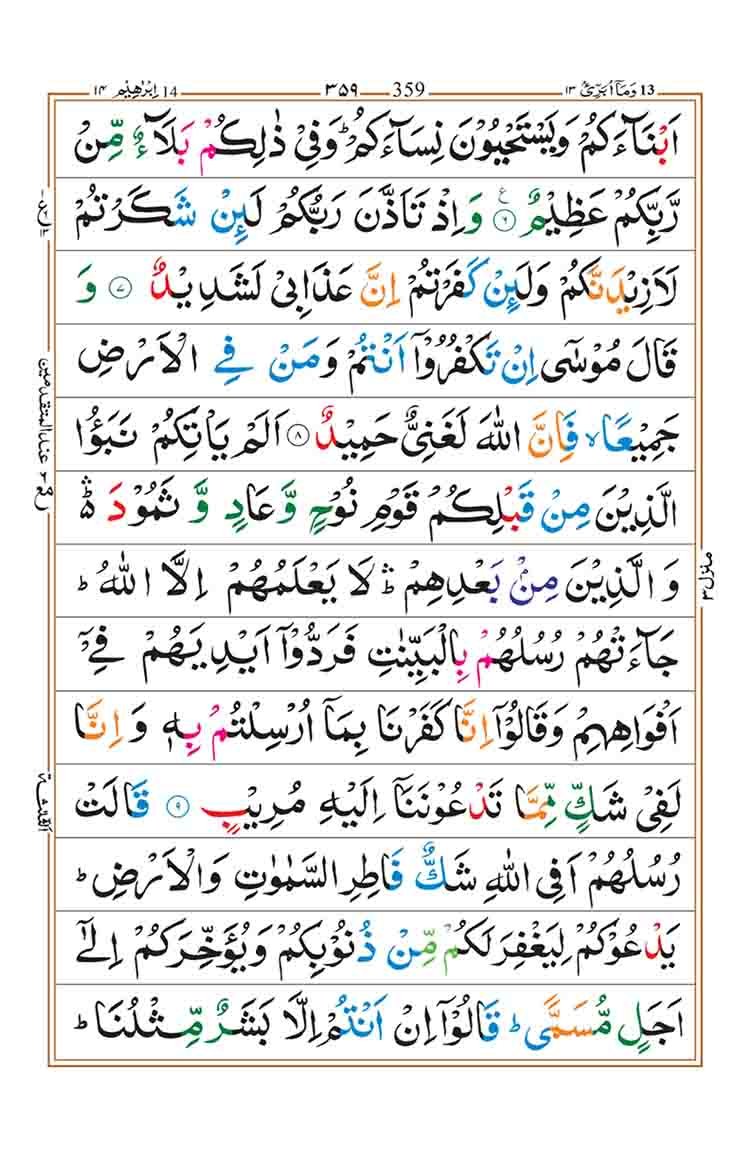 13 وَمَاۤ اُبَرِّئُ ١٣ 359 ٣٥٩ 14 اِبْرٰهِيْم ١٤
اَبْنَآءَكُمْ وَيَسْتَحْيُوْنَ نِسَآءَكُمْ ؕ وَفِيْ ذٰلِكُمْ بَلَآءٌ مِّنْ
رَّبِّكُمْ عَظِيْمٌ ۶ ع وَاِذْ تَاَذَّنَ رَبُّكُمْ لَئِنْ شَكَرْتُمْ
لَاَزِيْدَنَّكُمْ وَلَئِنْ كَفَرْتُمْ اِنَّ عَذَابِيْ لَشَدِيْدٌ ۷ وَ
قَالَ مُوْسٰۤى اِنْ تَكْفُرُوْۤا اَنْتُمْ وَمَنْ فِي الْاَرْضِ
جَمِيْعًا ۙ فَاِنَّ اللّٰهَ لَغَنِيٌّ حَمِيْدٌ ۸ اَلَمْ يَاْتِكُمْ نَبَؤُا
الَّذِيْنَ مِنْ قَبْلِكُمْ قَوْمِ نُوْحٍ وَّعَادٍ وَّ ثَمُوْدَ ۛؕ
وَ الَّذِيْنَ مِنْۢ بَعْدِهِمْ ۛؕ لَا يَعْلَمُهُمْ اِلَّا اللّٰهُ ؕ
جَآءَتْهُمْ رُسُلُهُمْ بِالْبَيِّنٰتِ فَرَدُّوْۤا اَيْدِيَهُمْ فِيْۤ
اَفْوَاهِهِمْ وَقَالُوْۤا اِنَّا كَفَرْنَا بِمَاۤ اُرْسِلْتُمْ بِهٖ وَ اِنَّا
لَفِيْ شَكٍّ مِّمَّا تَدْعُوْنَنَاۤ اِلَيْهِ مُرِيْبٍ ۹ قَالَتْ
رُسُلُهُمْ اَفِي اللّٰهِ شَكٌّ فَاطِرِ السَّمٰوٰتِ وَالْاَرْضِ ؕ
يَدْعُوْكُمْ لِيَغْفِرَ لَكُمْ مِّنْ ذُنُوْبِكُمْ وَيُؤَخِّرَكُمْ اِلٰۤى
اَجَلٍ مُّسَمًّى ؕ قَالُوْۤا اِنْ اَنْتُمْ اِلَّا بَشَرٌ مِّثْلُنَا ؕ
منزل ۳
عند المتقدمين